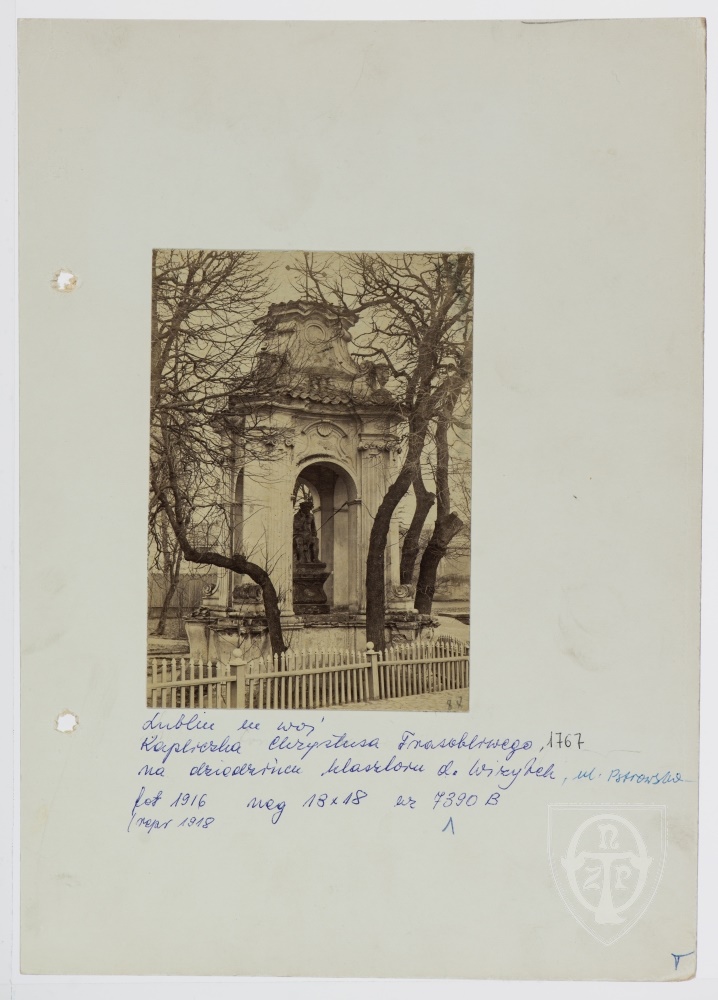 Lublin m woj
Kapliczka Chrystusa Frasobliwego, 1767
na dziedzińcu klasztoru d. Wizytek, ul. Peowiaków
fot 1916 neg 13x18 nr 7390 B
(repr 1918